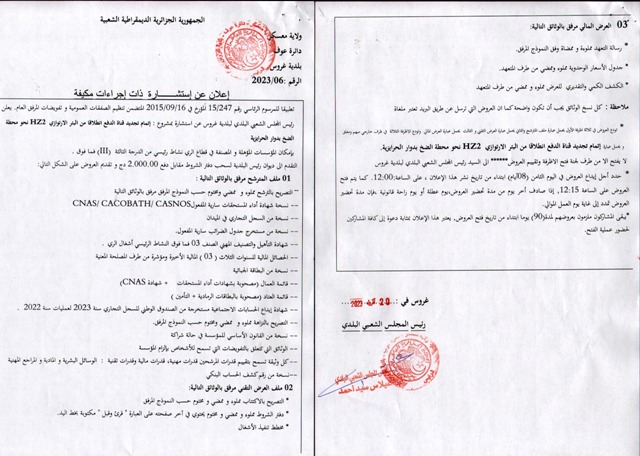 الجمهورية الجزائرية الديمقراطية الشعبية
ولاية معسكر
دائرة عوف
بلدية غروس
الرقم :2023/06
إعلان عن إستشارة ذات إجراءات مكيفة
تطبيقا للمرسوم الرئاسي رقم 15/247 المؤرخ في 2015/09/16 المتضمن تنظيم الصفقات العمومية و تفويضات المرفق العام. يعلن
رئيس المجلس الشعبي البلدي لبلدية غروس عن استشارة بمشروع : إتمام تجديد قناة الدفع انطلاقا من البئر الارتوازي HZ2 نحو محطة
الضخ بدوار الحرايزية
بإمكان المؤسسات المؤهلة و المصنفة في قطاع الري نشاط رئيسي من الدرجة الثالثة (III) فما فوق .
التقدم الى ديوان رئيس البلدية لسحب دفتر الشروط مقابل دفع 2.000.00 دج و تقديم العروض على الشكل التالي:
01 ملف المترشح مرفق بالوثائق التالية :
-- التصريح بالترشح مملوء و ممضي ومختوم حسب النموذج المرفق بالوثائق التالية
-- نسخة شهادة أداء المستحقات سارية المفعول CNAS/ CACOBATH/ CASNOS
-- نسخة من السجل التجاري في الميدان
-- نسخة من مستخرج جدول الضرائب سارية المفعول.
-- شهادة التأهيل والتصنيف المهني الصنف 03 فما فوق النشاط الرئيسي أشغال الري .
-- الحصائل المالية للسنوات الثلاث ( 03 ) المالية الأخيرة ومؤشرة من طرف المصلحة المعنية
-- نسخة من البطاقة الجبائية
-- قائمة العمال (مصحوبة بشهادات أداء المستحقات + شهادة CNAS)
-- قائمة العتاد (مصحوبة بالبطاقات الرمادية + التأمين )
-- شهادة إيداع الحسابات الاجتماعية مستخرجة من الصندوق الوطني للسجل التجاري سنة 2023 لعمليات سنة 2022 .
-- التصريح بالنزاهة مملوء و ممضي ومختوم حسب النموذج المرفق.
-- نسخة من القانون الأساسي للمؤسسة في حالة شراكة
-- الوثائق التي تتعلق بالتفويضات التي تسمح للأشخاص بإلزام المؤسسة
-- كل وثيقة تسمح بتقييم قدرات المترشحين قدرات مهنية، قدرات مالية وقدرات تقنية : الوسائل البشرية و المادية و المراجع المهنية
-- نسخة من رقم كشف الحساب البنكي
02 ملف العرض التقني مرفق بالوثائق التالية:
* التصريح بالاكتتاب مملوء و ممضي و مختوم حسب النموذج المرفق
* دفتر الشروط مملوء و ممضي و مختوم يحتوي في آخر صفحته على العبارة " قرئ وقبل " مكتوبة بخط اليد.
* مخطط تنفيذ الأشغال
03 العرض المالي مرفق بالوثائق التالية:
* رسالة التعهد مملوءة و ممضاة وفق النموذج المرفق.
* جدول الأسعار الوحدوية مملوء وممضي من طرف المتعهد.
* الكشف الكمي والتقديري للعرض مملوء و ممضي من طرف المتعهد
ملاحظة : كل نسخ الوثائق يجب أن تكون واضحة كما ان العروض التي ترسل عن طريق البريد تعتبر ملغاة
يحمل عبارة إتمام تجديد قناة الدفع انطلاقا من البئر الارتوازي HZ2 نحو محطة الضخ بدوار الحرايزية.
لا يفتح الا من طرف لجنة فتح الاظرفة وتقييم العروض ****** الى السيد رئيس المجلس الشعبي البلدي لبلدية غروس
* حدد أجل إيداع العروض في اليوم الثامن (08أيام) ابتداء من تاريخ نشر هذا الإعلان ، على الساعة:12:00. كما يتم فتح
العروض على الساعة 12:15، إذا صادف آخر يوم من مدة تحضير العروض،يوم عطلة أو يوم راحة قانونية ،فإن مدة تحضير
العروض تمدد إلى غاية يوم العمل الموالي.
*يبقى المشاركون ملزمون بعروضهم لمدة(90) يوما ابتداء من تاريخ فتح العروض. يعتبر هذا الإعلان بمثابة دعوة إلى كافة المشاركين
لحضور عملية الفتح.
غروس في : 20 2023
رئيس المجلس الشعبي البلدي